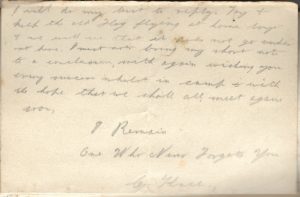 I will do my best to reply. Try &
keep the old flag flying at home boys
& we will see that it does not go under
out here. I must now bring my short note
to a conclusion, with again wishing you
every success whilst in camp & with
the hope that we shall all meet again
soon,
I Remain
One Who Never Forgets You